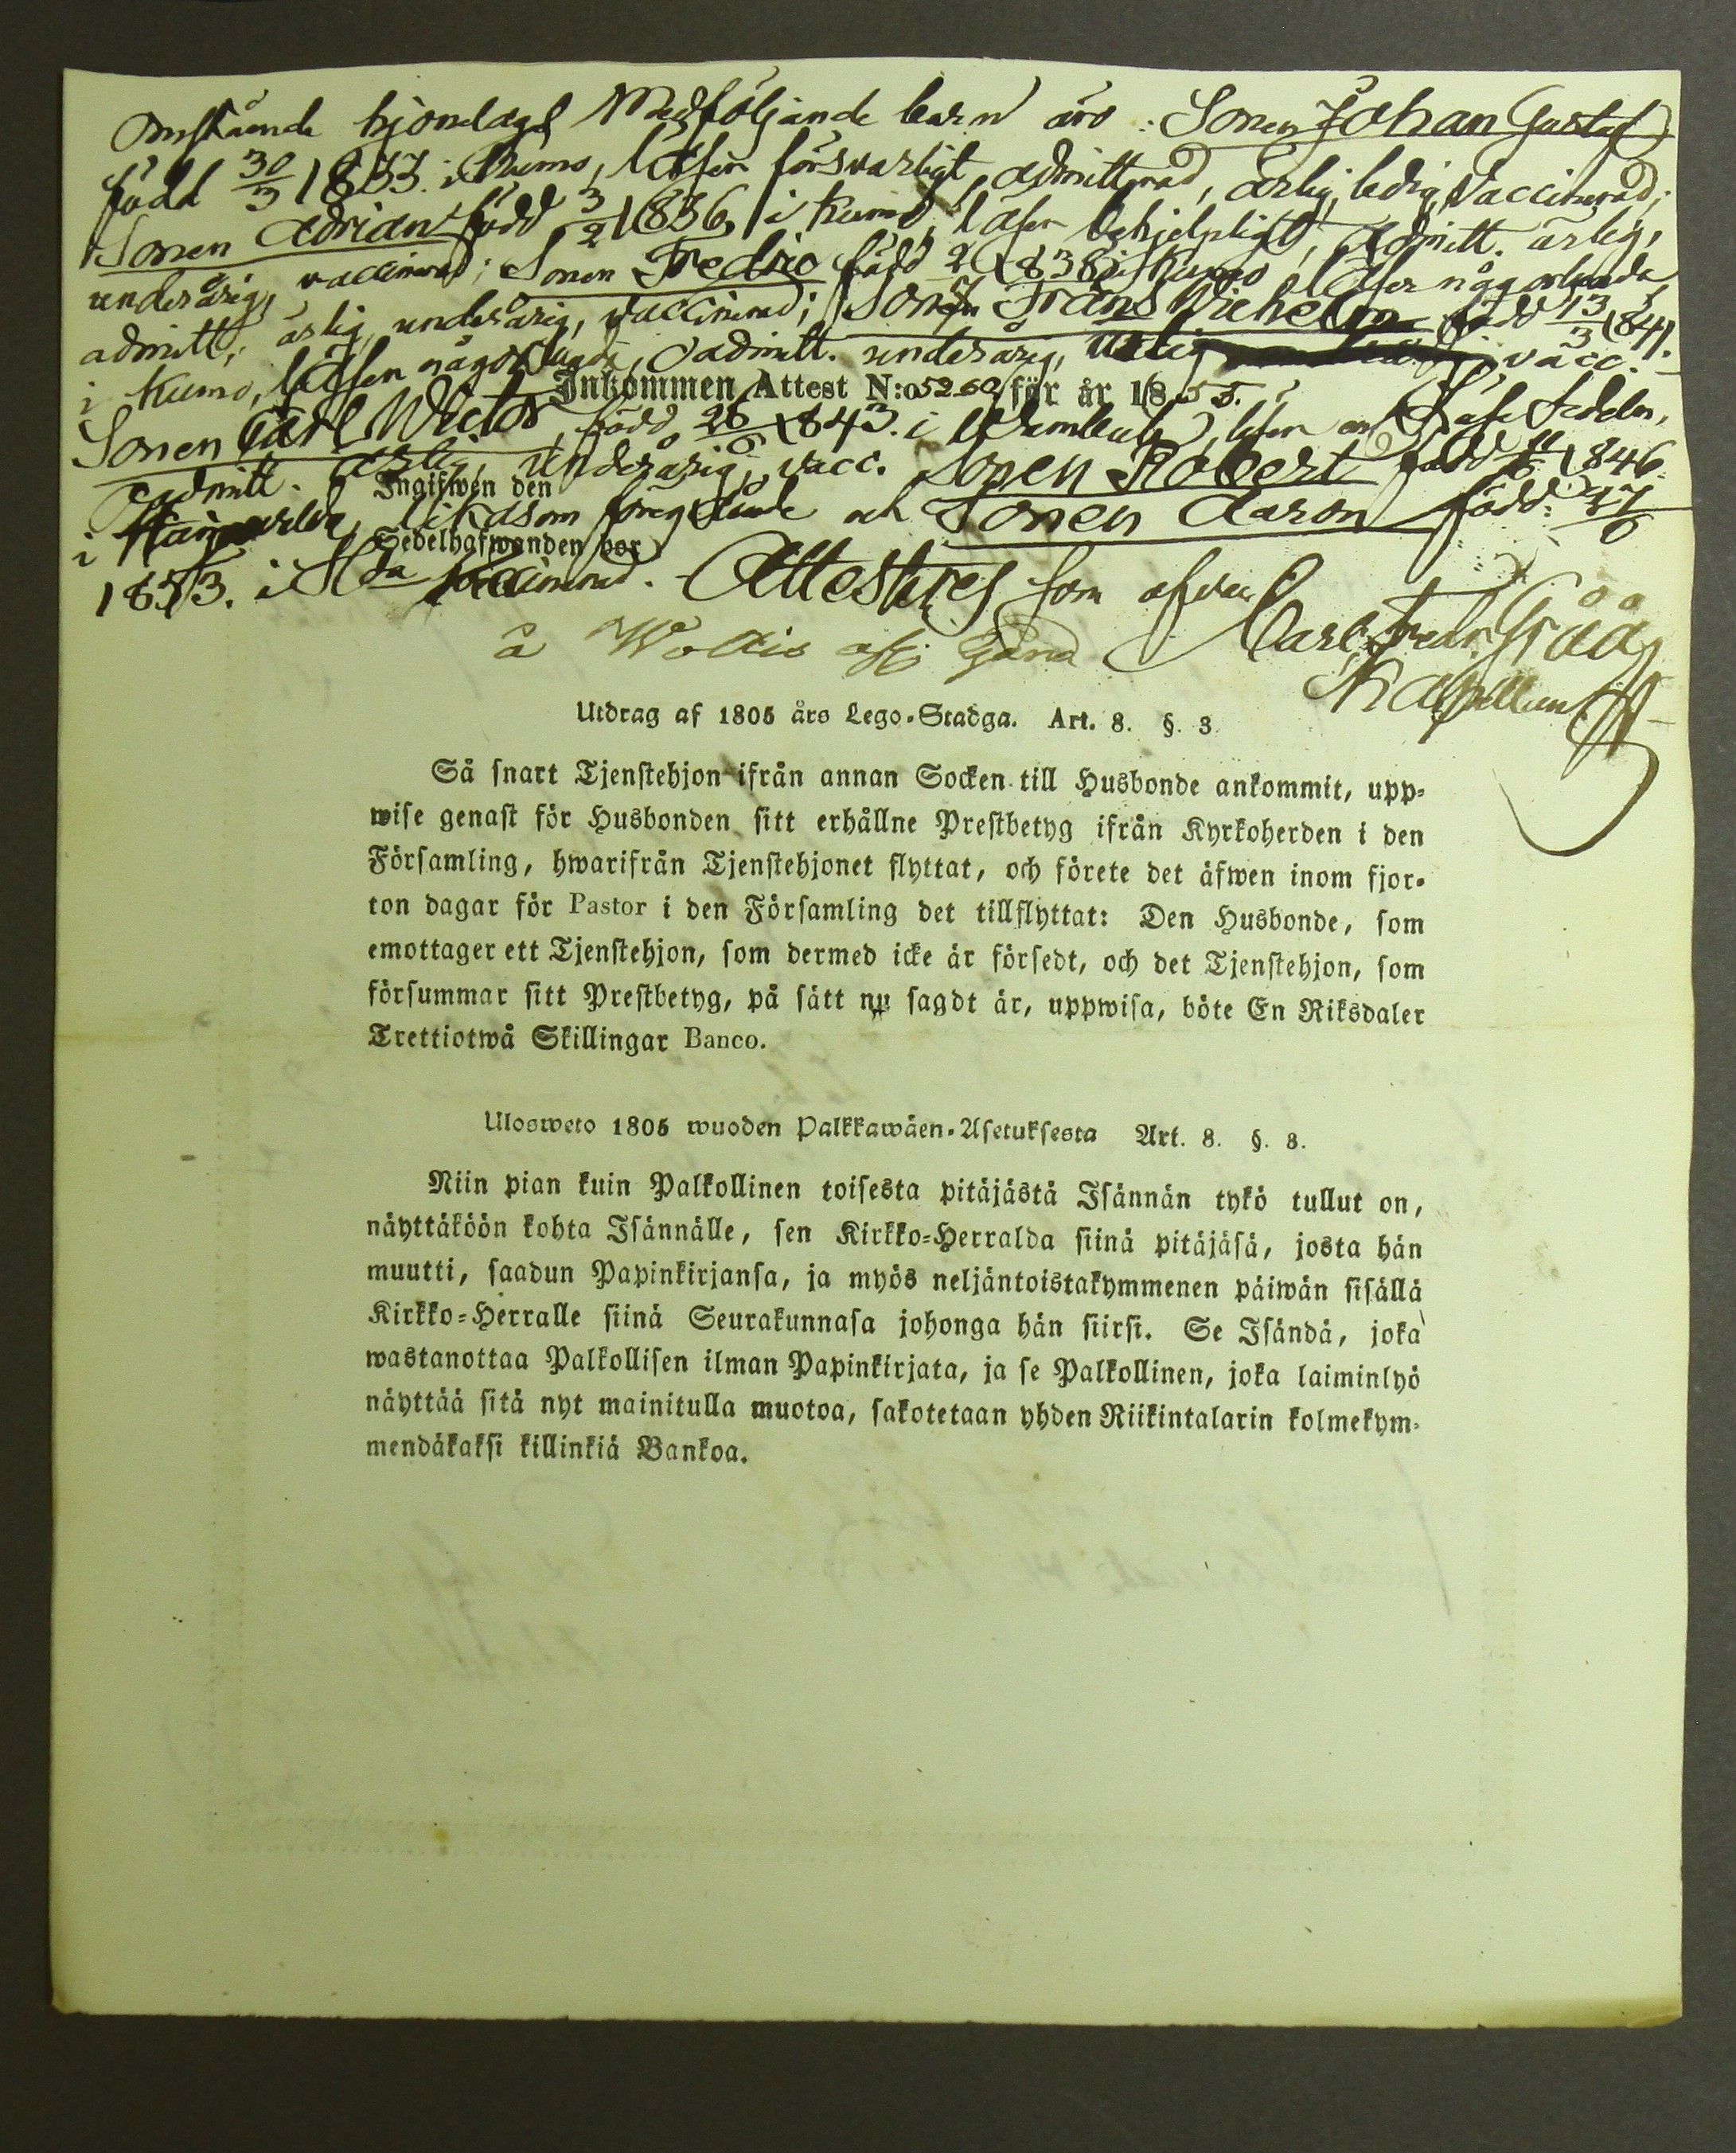 Omstående hjonelags Medföljande barn äro: Sonen Johan Gustaf
född 30/3 1833. i Kumo, läser försvarligt, admitterad, ärlig, ledig, vaccinerad;
Sonen Adrian född 3/2 1836 i Kumo, läser behjelpligt, admitt. ärlig,
underårig, vaccinerad; Sonen Fredric född 1838 i Kumo läser någorlunda,
admitt. ärlig, underårig, vaccinerad; Sonen Frans Wilhelm född 13/3 1841.
i Kumo, läser någorlunda, admitt. underårig, vacc.
Inkommen Attest N:o 52.60 för år 1855.
Sonen Carl Wictor, född 26/6 1843. i läser
admitt. ärlig, underårig, vacc. Sonen Robert född 1846
Ingifwen den
i likasom föregående och Sonen Aaron född: 27/6
Sedelhafwanden bor
1853. i vaccinerad. Attesteres som ofvan Carl Fredr. Grååå
å Kapellan
Utdrag af 1805 års Lego-Stadga. Art. 8. §. 3.
Så snart Tjenstehjon ifrån annan Socken till Husbonde ankommit, upp-
wise genast för Husbonden sitt erhållne Prestbetyg ifrån Kyrkoherden i den
Församling, hwarifrån Tjenstehjonet flyttat, och förete det äfwen inom fjor-
ton dagar för Pastor i den Församling det tillflyttat: Den Husbonde, som
emottager ett Tjenstehjon, som dermed icke är försedt, och det Tjenstehjon, som
försummar sitt Prestbetyg, på sätt nu sagdt är, uppwisa, böte En Riksdaler
Trettiotwå Skillingar Banco.
Ulosweto 1805 wuoden Palkkawäen-Asetuksesta Art. 8. §. 3.
Niin pian kuin Palkollinen toisesta pitäjästä Isännän tykö tullut on,
näyttäköön kohta Isännälle, sen Kirkko-Herralda siinä pitäjäsä, josta hän
muutti, saadun Papinkirjansa, ja myös neljäntoistakymmenen päiwän sisällä
Kirkko-Herralle siinä Seurakunnasa johonga hän siirsi. Se Isändä, joka
wastanottaa Palkollisen ilman Papinkirjata, ja se Palkollinen, joka laiminlyö
näyttää sitä nyt mainitulla muotoa, sakotetaan yhden Riikintalarin kolmekym-
mendäkaksi killinkiä Bankoa.